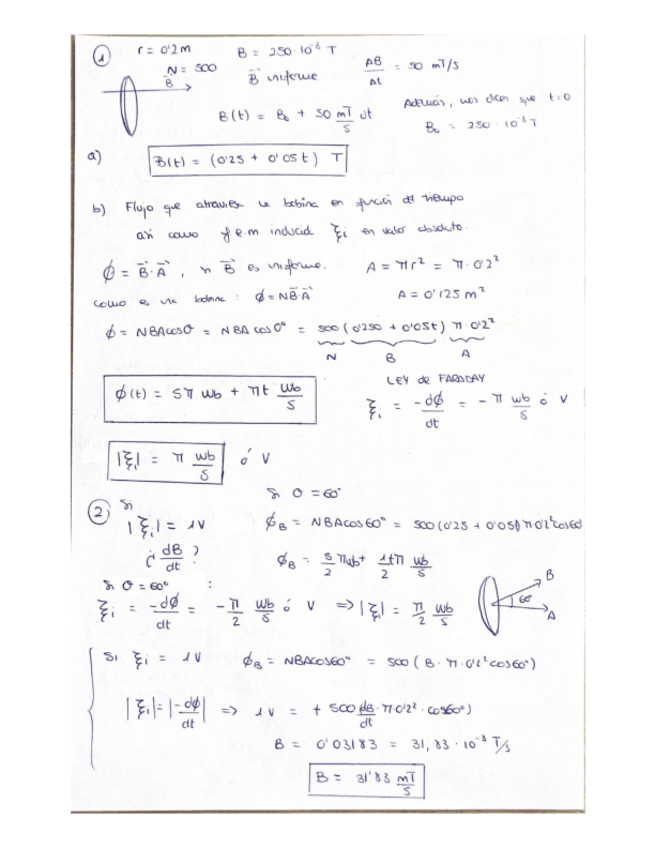 ① r = 0'2m B = 250·10⁻³ T
N = 500 B⃗ uniforme ΔB/Δt = 50 mT/s
B⃗
B(t) = B₀ + 50 mT/s dt Además, nos dicen que t=0
B₀ = 250·10⁻³ T
a) B(t) = (0'25 + 0'05t) T
b) Flujo que atraviesa la bobina en función del tiempo
así como f.e.m inducida ξi en valor absoluto.
ϕ = B⃗·A⃗, si B⃗ es uniforme. A = πr² = π·0'2²
como es una bobina: ϕ = NB⃗A⃗ A = 0'125 m²
ϕ = NBAcosθ = NBA cos0° = 500 (0'250 + 0'05t) π 0'2²
N B A
ϕ(t) = 5π wb + πt wb/s
LEY de FARADAY
ξi = -dϕ/dt = -π wb/s ó V
|ξi| = π wb/s ó V
Si θ = 60°
② Si
|ξi| = 1V ϕB = NBAcos60° = 500 (0'25 + 0'05t) π 0'2² cos60
(¿ dB/dt ?) ϕB = 5/2 πwb + 1/2 tπ wb/s
Si θ = 60° :
ξi = -dϕ/dt = -π/2 wb/s ó V => |ξi| = π/2 wb/s
B
60°
A
Si ξi = 1V ϕB = NBAcos60° = 500 (B·π·0'2² cos60°)
|ξi| = |-dϕ/dt| => 1V = + 500 (dB/dt ·π·0'2²·cos60°)
B = 0'03183 = 31,83·10⁻³ T/s
B = 31'83 mT/s